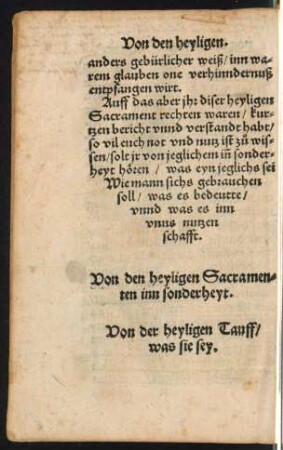 Von den heyligen.
anders gebürlicher weiß/ inn wa-
rem glauben one verhinndernuß
entpfangen wirt.
Auff das aber jhr diser heyligen
Sacrament rechten waren/ kur-
tzen bericht vnnd verstandt habt/
so vil euch not vnd nutz ist zů wis-
sen/ solt jr von jeglichem iñ sonder-
heyt hören/ was eyn jeglichs sei
Wie mann sichs gebrauchen
soll/ was es bedeutte/
vnnd was es inn
vnns nutzen
schafft.
Von den heyligen Sacramen-
ten inn sonderheyt.
Von der heyligen Tauff/
was sie sey.